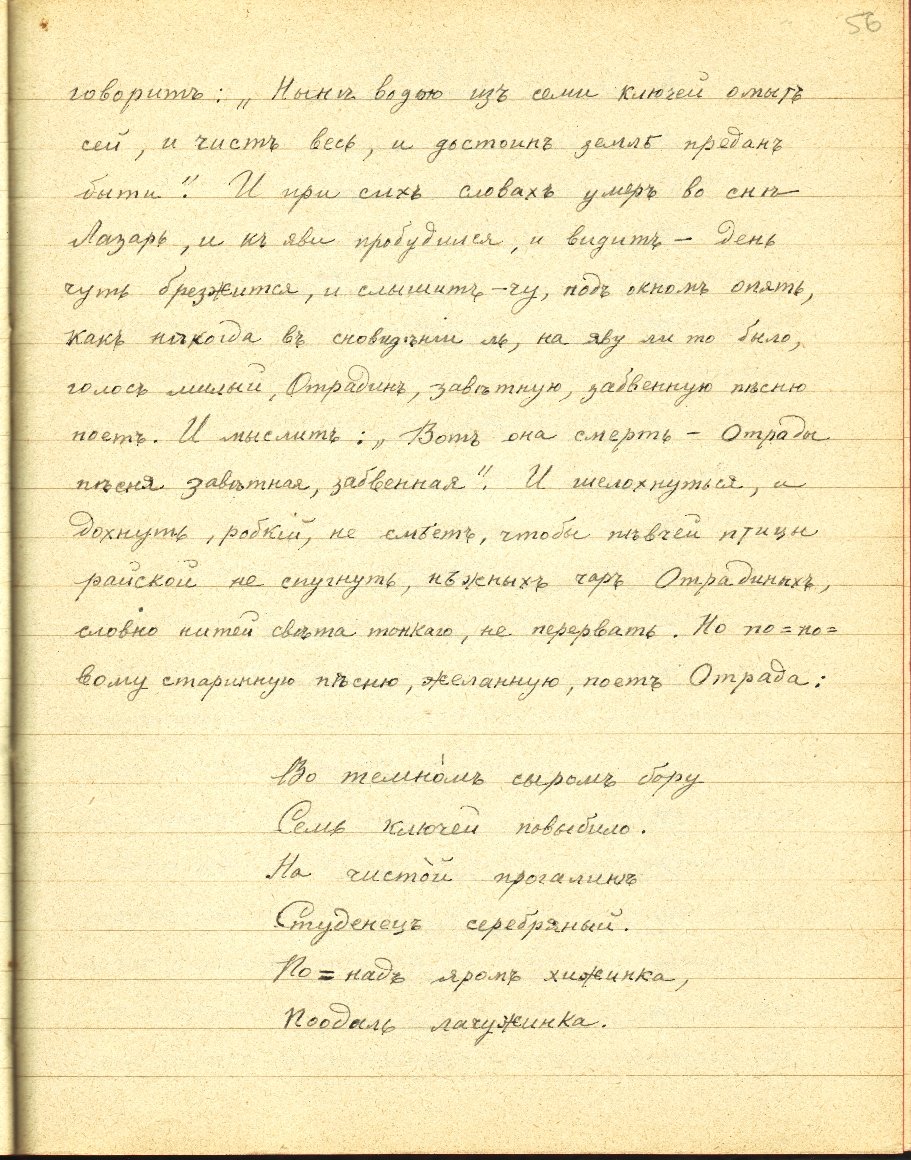 56
говоритъ: „Нынѣ водою изъ семи ключей омытъ
сей, и чистъ весь, и достоинъ землѣ преданъ
быти“. И при сихъ словахъ умеръ во снѣ
Лазарь, и къ яви пробудился, и видитъ – день
чуть брезжится, и слышитъ – чу, подъ окномъ опять,
какъ нѣкогда въ сновидѣніи ль, на яву ли то было,
голосъ милый, Отрадинъ, завѣтную, забвенную пѣсню
поетъ. И мыслитъ: „Вотъ она смерть – Отрады
пѣсня завѣтная, забвенная“. И шелохнуться, и
дохнуть, робкій, не смѣетъ, чтобы пѣвчей птицы
райской не спугнуть, нѣжныхъ чаръ Отрадиныхъ,
словно нитей свѣта тонкаго, не перервать. Но по=но=
вому старинную пѣсню, желанную, поетъ Отрада:
Во темно́мъ сыромъ бору
Семь ключей повыбило.
На чисто́й прогалинѣ
Студенецъ серебряный.
По=надъ яромъ хижинка,
Поодаль лачужинка.